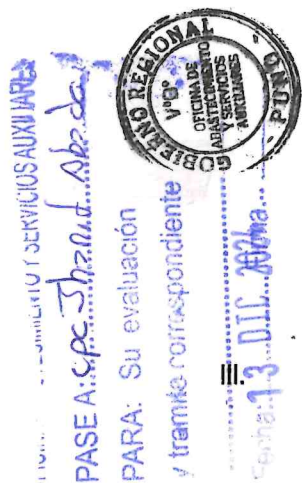 Y SERVICIOS AUXILIARES
PASE A: CPC Jhanet
PARA: Su evaluación
y tramite correspondiente
III.
Fecha: 13 DIC. 202
GOBIERNO REGIONAL
PUNO
VºBº
OFICINA DE
ABASTECIMIENTO
Y SERVICIOS
AUXILIARES